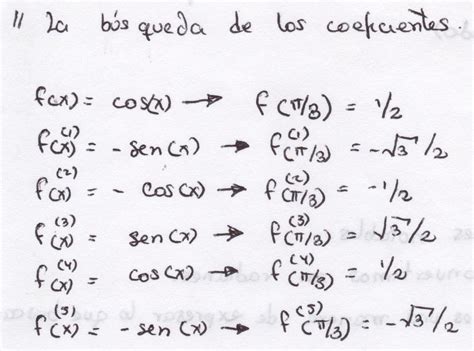 11 La búsqueda de los coeficientes.
f(x) = cos(x) → f(π/3) = 1/2
f⁽¹⁾(x) = - sen(x) → f⁽¹⁾(π/3) = -√3/2
f⁽²⁾(x) = - cos(x) → f⁽²⁾(π/3) = -1/2
f⁽³⁾(x) = sen(x) → f⁽³⁾(π/3) = √3/2
f⁽⁴⁾(x) = cos(x) → f⁽⁴⁾(π/3) = 1/2
f⁽⁵⁾(x) = - sen(x) → f⁽⁵⁾(π/3) = -√3/2